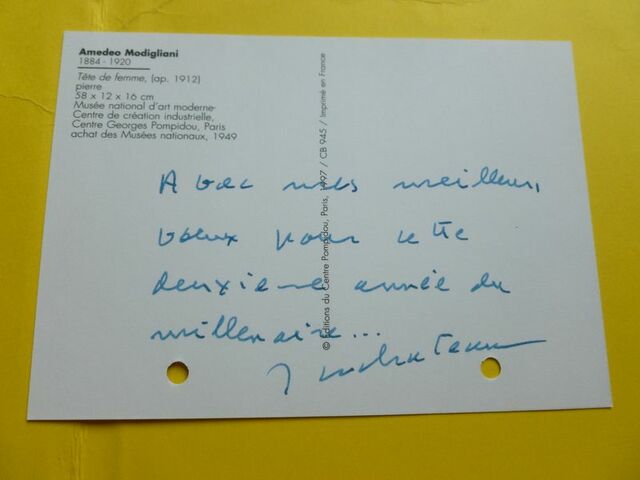 Amedeo Modigliani
1884 - 1920
Tête de femme, (ap. 1912)
pierre
58 x 12 x 16 cm
Musée national d'art moderne-
Centre de création industrielle,
Centre Georges Pompidou, Paris
achat des Musées nationaux, 1949
© Editions du Centre Pompidou, Paris, 1997 / CB 945 / Imprimé en France
Avec mes meilleurs
voeux pour cette
deuxième année du
millenaire...